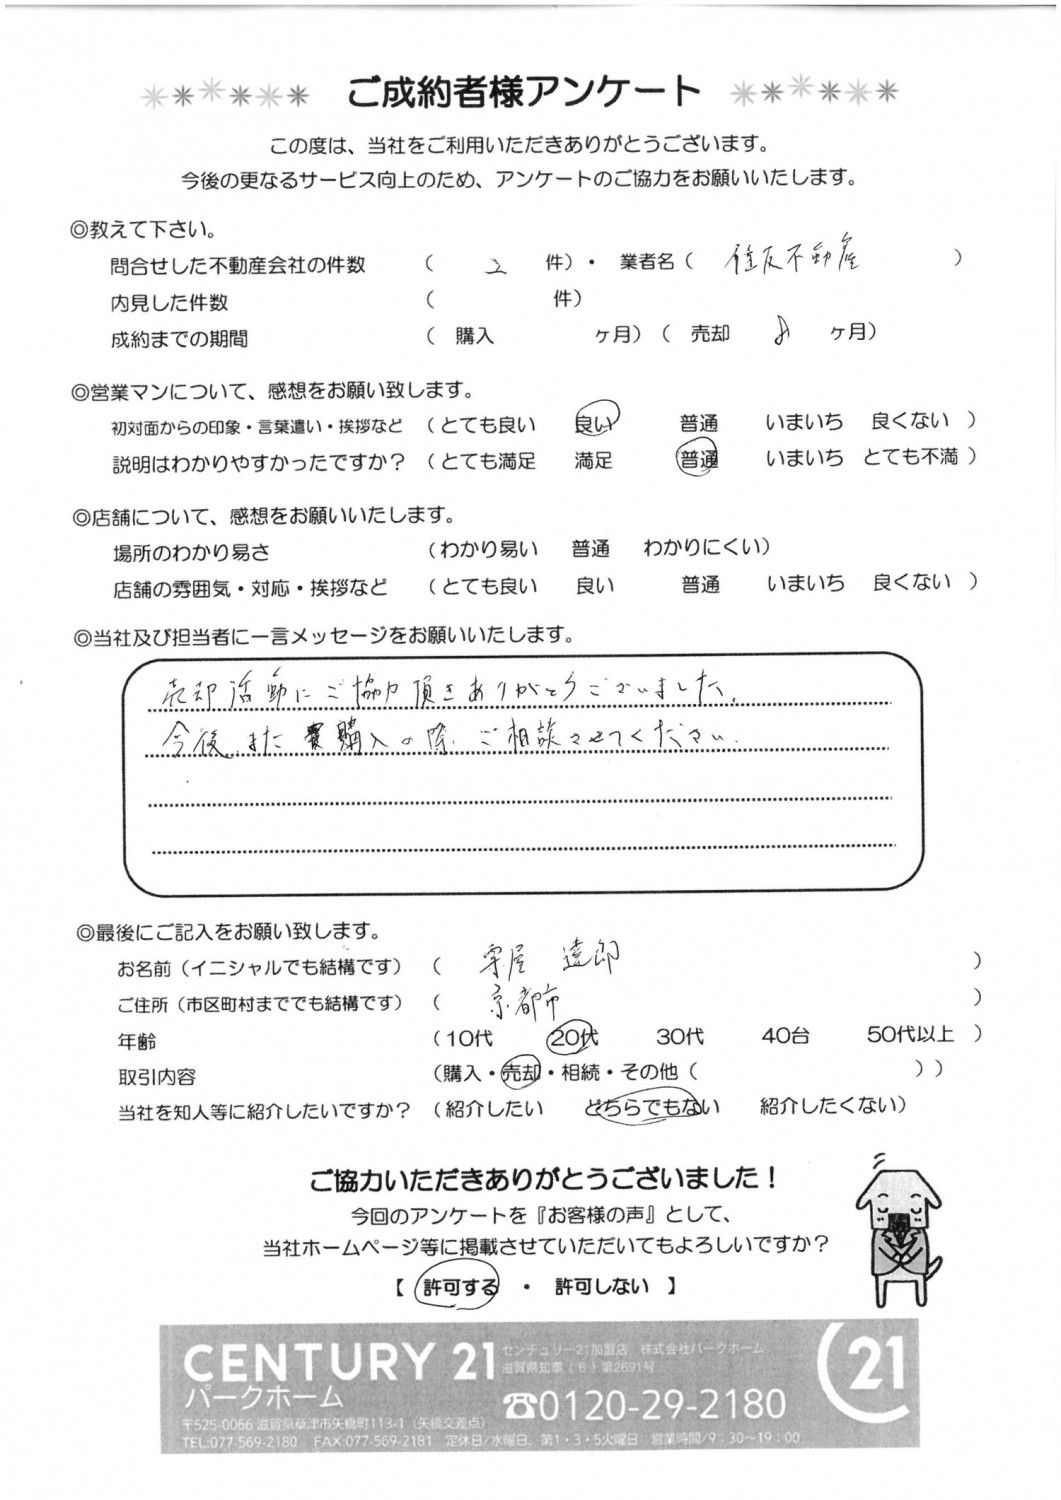 ご成約者様アンケート
この度は、当社をご利用いただきありがとうございます。
今後の更なるサービス向上のため、アンケートのご協力をお願いいたします。
◎教えて下さい。
問合せした不動産会社の件数 ( 2 件)・ 業者名 ( 住友不動産 )
内見した件数 ( 件)
成約までの期間 ( 購入 ヶ月) ( 売却 ヶ月)
◎営業マンについて、感想をお願い致します。
初対面からの印象・言葉遣い・挨拶など (とても良い 良い 普通 いまいち 良くない )
説明はわかりやすかったですか? (とても満足 満足 普通 いまいち とても不満 )
◎店舗について、感想をお願いいたします。
場所のわかり易さ (わかり易い 普通 わかりにくい)
店舗の雰囲気・対応・挨拶など (とても良い 良い 普通 いまいち 良くない )
◎当社及び担当者に一言メッセージをお願いいたします。
売却活動にご協力頂きありがとうございました。
今後、また購入の際、ご相談させてください。
◎最後にご記入をお願い致します。
お名前(イニシャルでも結構です) ( 屋 達郎 )
ご住所(市区町村まででも結構です) ( 京都市 )
年齢 (10代 20代 30代 40台 50代以上 )
取引内容 (購入・売却・相続・その他 ( ) )
当社を知人等に紹介したいですか? (紹介したい どちらでもない 紹介したくない)
ご協力いただきありがとうございました!
今回のアンケートを『お客様の声』として、
当社ホームページ等に掲載させていただいてもよろしいですか?
【 許可する ・ 許可しない 】
CENTURY 21 センチュリー21加盟店 株式会社パークホーム
滋賀県知事(6)第2691号
パークホーム
☎0120-29-2180
21
〒525-0066 滋賀県草津市矢橋町113-1(矢橋交差点)
TEL:077-569-2180 FAX:077-569-2181 定休日/水曜日、第1・3・5火曜日 営業時間/9:30~19:00